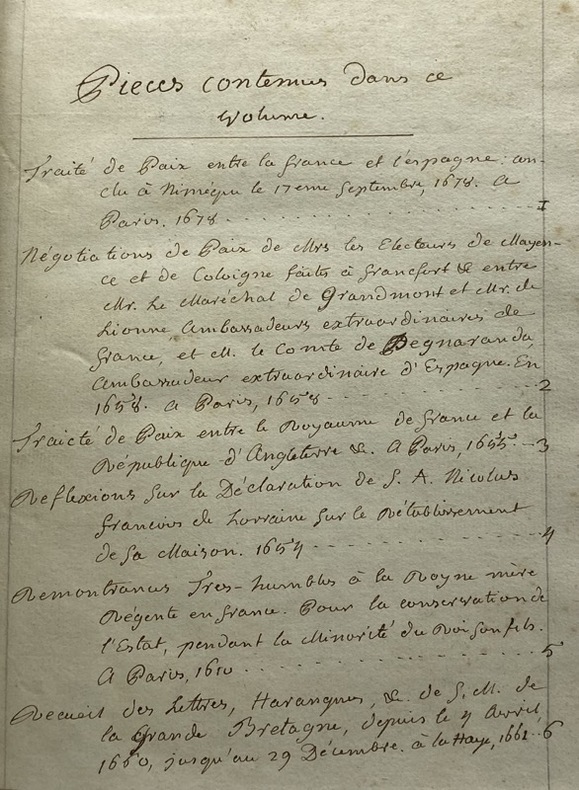 Pieces contenues dans ce
Volume.
Traité de Paix entre la france et l'espagne: con-
clu à Nimégue le 17eme Septembre, 1678. a
Paris. 1678 1
Négotiations de Paix de Mrs les Electeurs de Mayen-
ce et de Cologne faites à francfort & entre
Mr. Le Maréchal de Grandmont et Mr. de
Lionne Ambassadeurs extraordinaires de
france, et M. le Comte de Pegnaranda,
Ambassadeur extraordinaire d'Espagne. En
1658. a Paris, 1658 2
Traicté de Paix entre le Royaume de france et la
République d'Angleterre &. A Paris, 1655. 3
Reflexions sur la Déclaration de S. A. Nicolas
francois de Lorraine sur le Rétablissement
de sa Maison. 1654 4
Remontrances Tres-humbles à la Royne mère
Régente en france. Pour la conservation de
l'Estat, pendant la Minorité du Roi son fils.
A Paris, 1610 5
Recueil des Lettres, Harangues, &. de S. M. de
la grande Bretagne, depuis le 4 Avril,
1660, jusqu'au 29 Décembre. à la Haye, 1661. 6